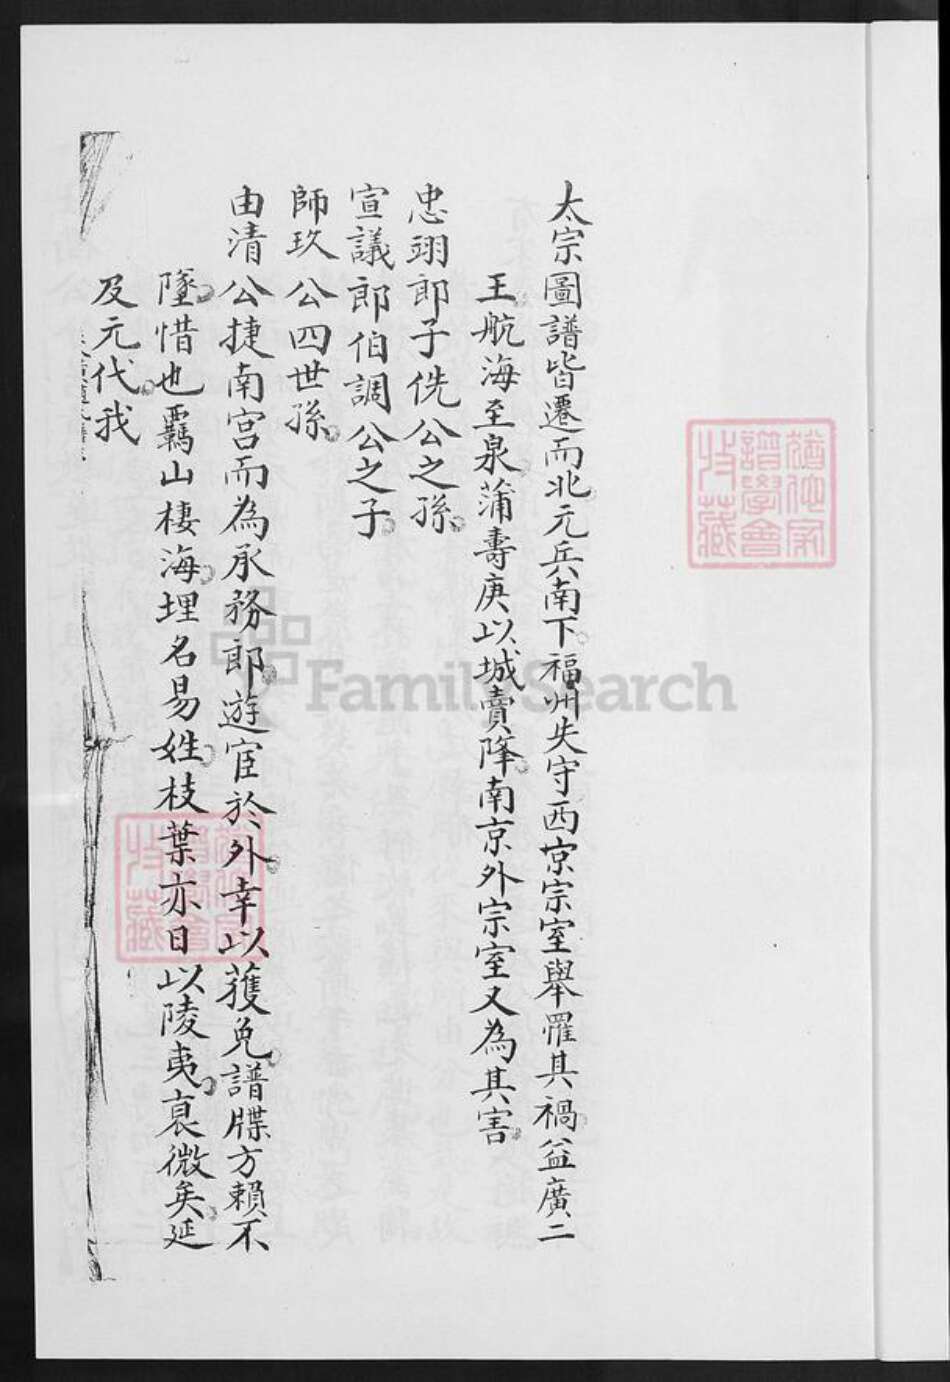 太宗圖譜皆遷而北元兵南下福州失守西京宗室舉罹其禍益廣二
王航海至泉蒲壽庚以城賣降南京外宗室又為其害
忠翊郎子侁公之孫
宣議郎伯調公之子
師玖公四世孫
由清公捷南宮而為承務郎遊宦於外幸以獲免譜牒方賴不
墜惜也羈山棲海埋名易姓枝葉亦日以陵夷衰微矣延
及元代我
FamilySearch
譜學會
收藏
譜學會
收藏